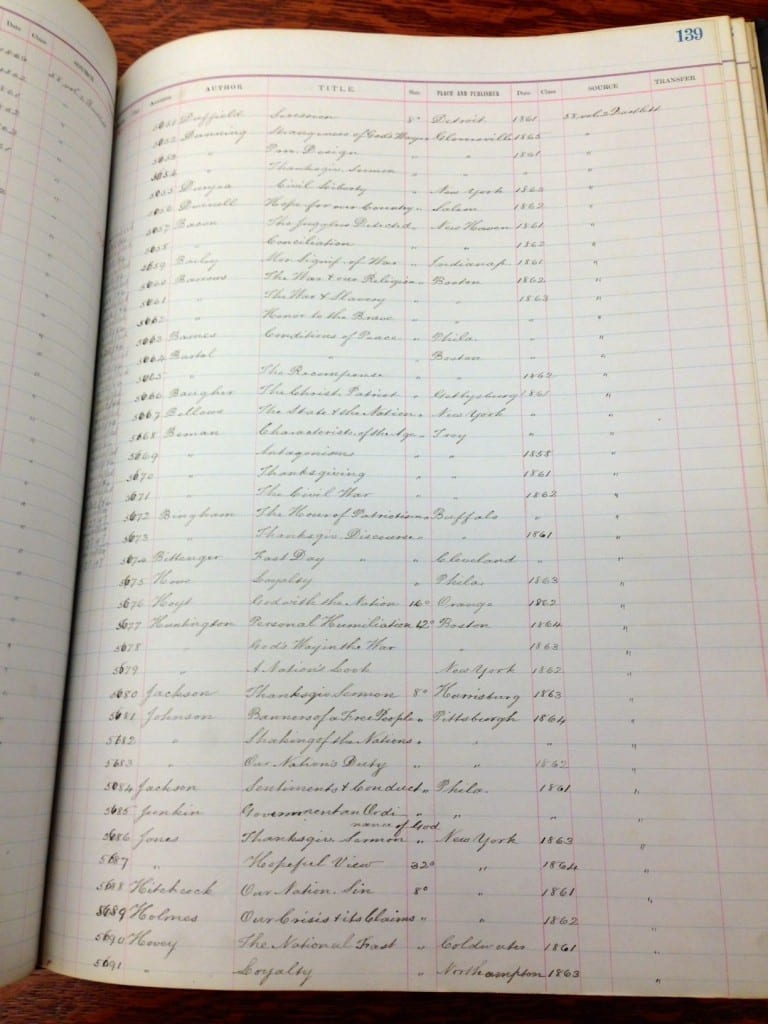 139
Date Class SOURCE
AUTHOR TITLE Size PLACE AND PUBLISHER Date Class SOURCE TRANSFER
5651 Duffield Secession 8° Detroit 1861 58 vols Bartlett
5652 Dunning Strangeness of God's Ways Gloversville 1865 "
5653 " Prov. Design " " 1861 "
5654 " Thanksgiv. Sermon " " " "
5655 Duryea Civil Liberty " New York 1863 "
5656 Dwinell Hope for our Country " Salem 1862 "
5657 Bacon The Jugglers Detected " New Haven 1861 "
5658 " Conciliation " " 1862 "
5659 Bailey Mor. Signif. of War " Indianap. 1861 "
5660 Barrows The War & our Religion " Boston 1862 "
5661 " The War & Slavery " " 1863 "
5662 " Honor to the Brave " " " "
5663 Barnes Conditions of Peace " Phila. " "
5664 Bartol " " Boston " "
5665 " The Recompense " " 1862 "
5666 Baugher The Christ. Patriot " Gettysburg 1861 "
5667 Bellows The State & the Nation " New York " "
5668 Beman Characterists. of the Age " Troy " "
5669 " Antagonisms " " 1858 "
5670 " Thanksgiving " " 1861 "
5671 " The Civil War " " 1862 "
5672 Bingham The Hour of Patriotism " Buffalo " "
5673 " Thanksgiv. Discourse " " 1861 "
5674 Bittenger Fast Day " " Cleveland " "
5675 Howe Loyalty " Phila. 1863 "
5676 Hoyt God with the Nation 16° Orange 1862 "
5677 Huntington Personal Humiliation 12° Boston 1864 "
5678 " God's Way in the War 1863 "
5679 " A Nation's New York 1862 "
5680 Jackson Thanksgiv. Sermon 8° Harrisburg 1863 "
5681 Johnson Banners of a Free People " Pittsburgh 1864 "
5682 " Shaking of the Nations " " " "
5683 " Our Nation's Duty " " 1862 "
5684 Jackson Sentiments & Conduct " Phila. 1861 "
5685 Junkin Government an Ordi- " " " "
nance of God
5686 Jones Thanksgiv. Sermon " New York 1863 "
5687 " Hopeful View 32° " 1864 "
5688 Hitchcock Our Nation. Sin 8° " 1861 "
5689 Holmes Our Crisis & its Claims " " 1862 "
5690 Hovey The National Fast " Coldwater 1861 "
5691 " Loyalty " Northampton 1863 "